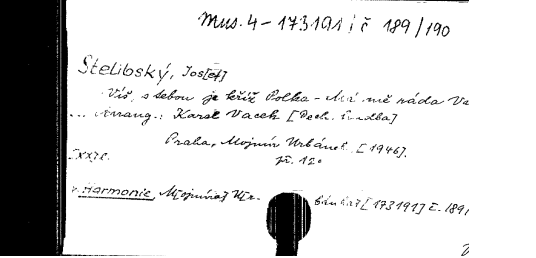 Mus. 4 - 173191 i č 189/190
Stelibský, Jos[ef]
Víš, s tebou je kříž Polka - Má mě ráda Va
... Arrang.: Karel Vacek [Dech. hudba]
Praha, Mojmír Urbánek [1946].
př. 120
v. Harmonie, M[ojmíra] U[r- bánka [173191] č. 189,